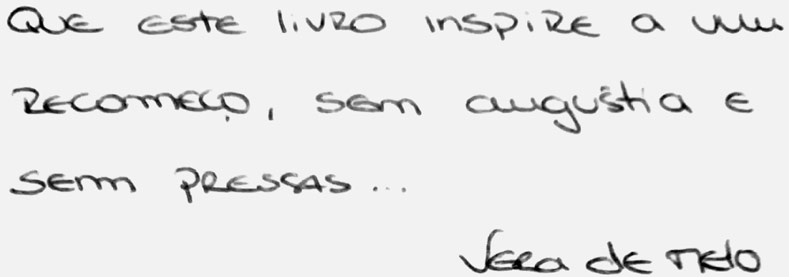 Que este livro inspire a um
recomeço, sem angústia e
sem pressas...
Vera de Melo